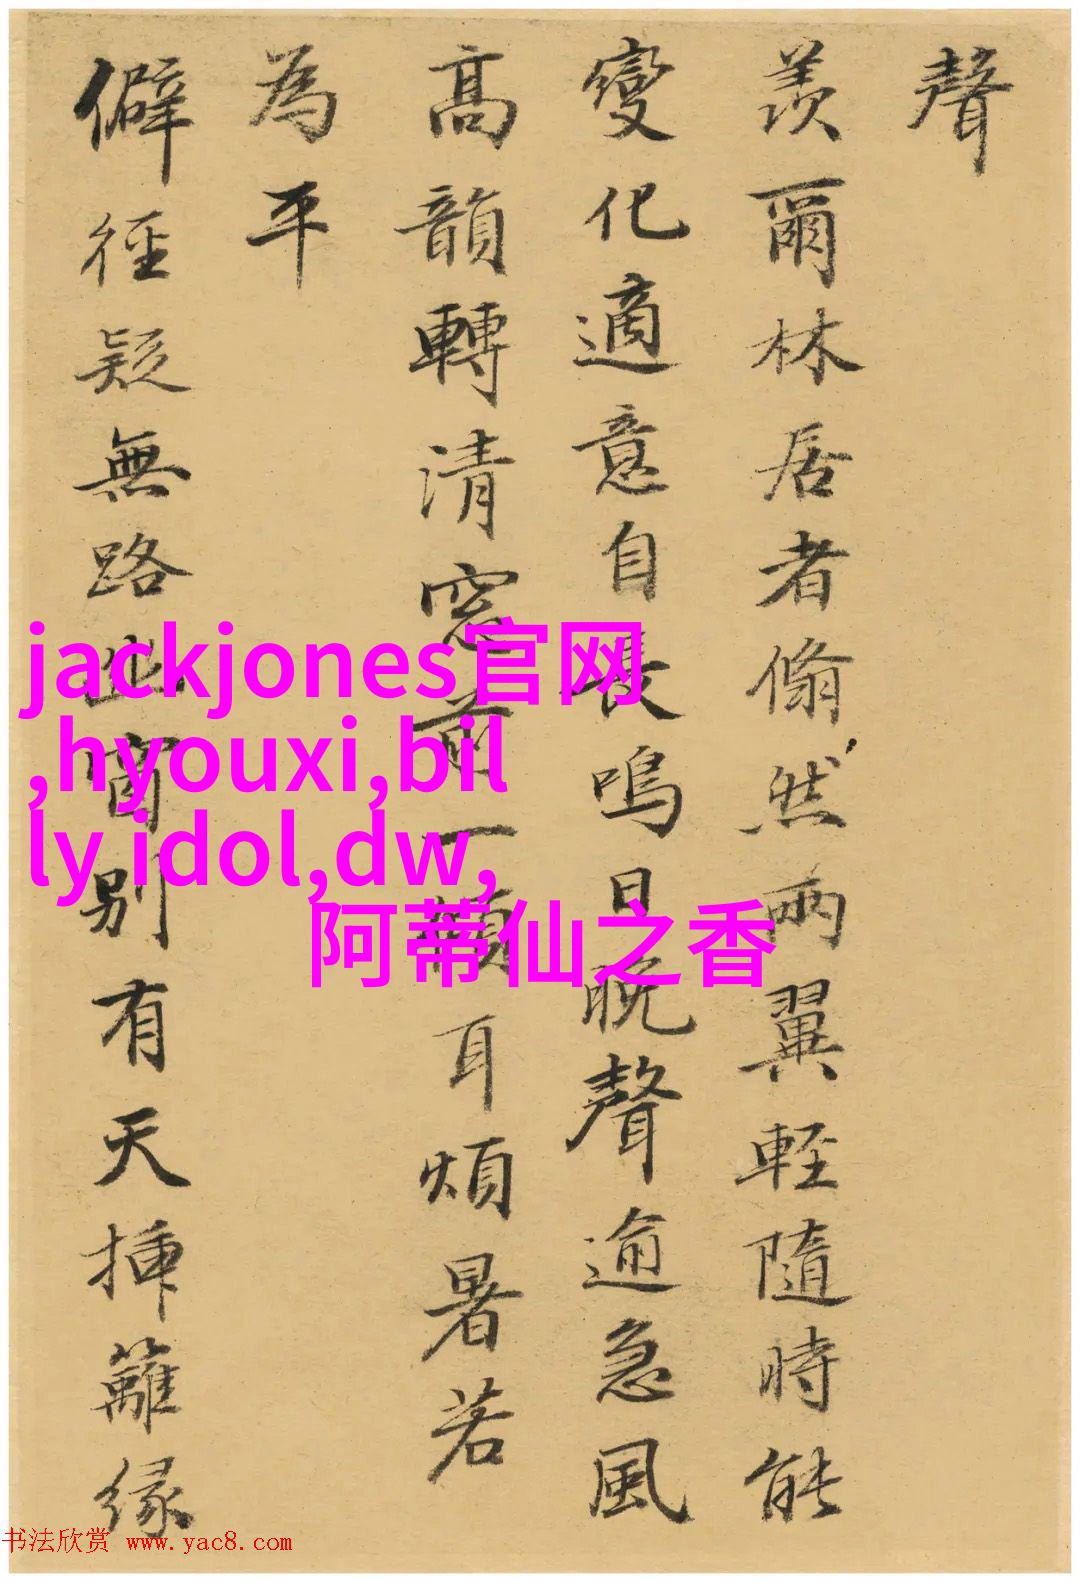 聲
羨爾林居者翛然兩翼輕隨時能
變化適意自長鳴日晚聲逾急風
高韻轉清窓前一傾耳煩暑若
為平
僻徑疑無路此窗別有天揷籬緣
jackjones官网
,hyouxi,bil
ly idol,dw,
阿蒂仙之香
书法欣赏 www.yac8.com